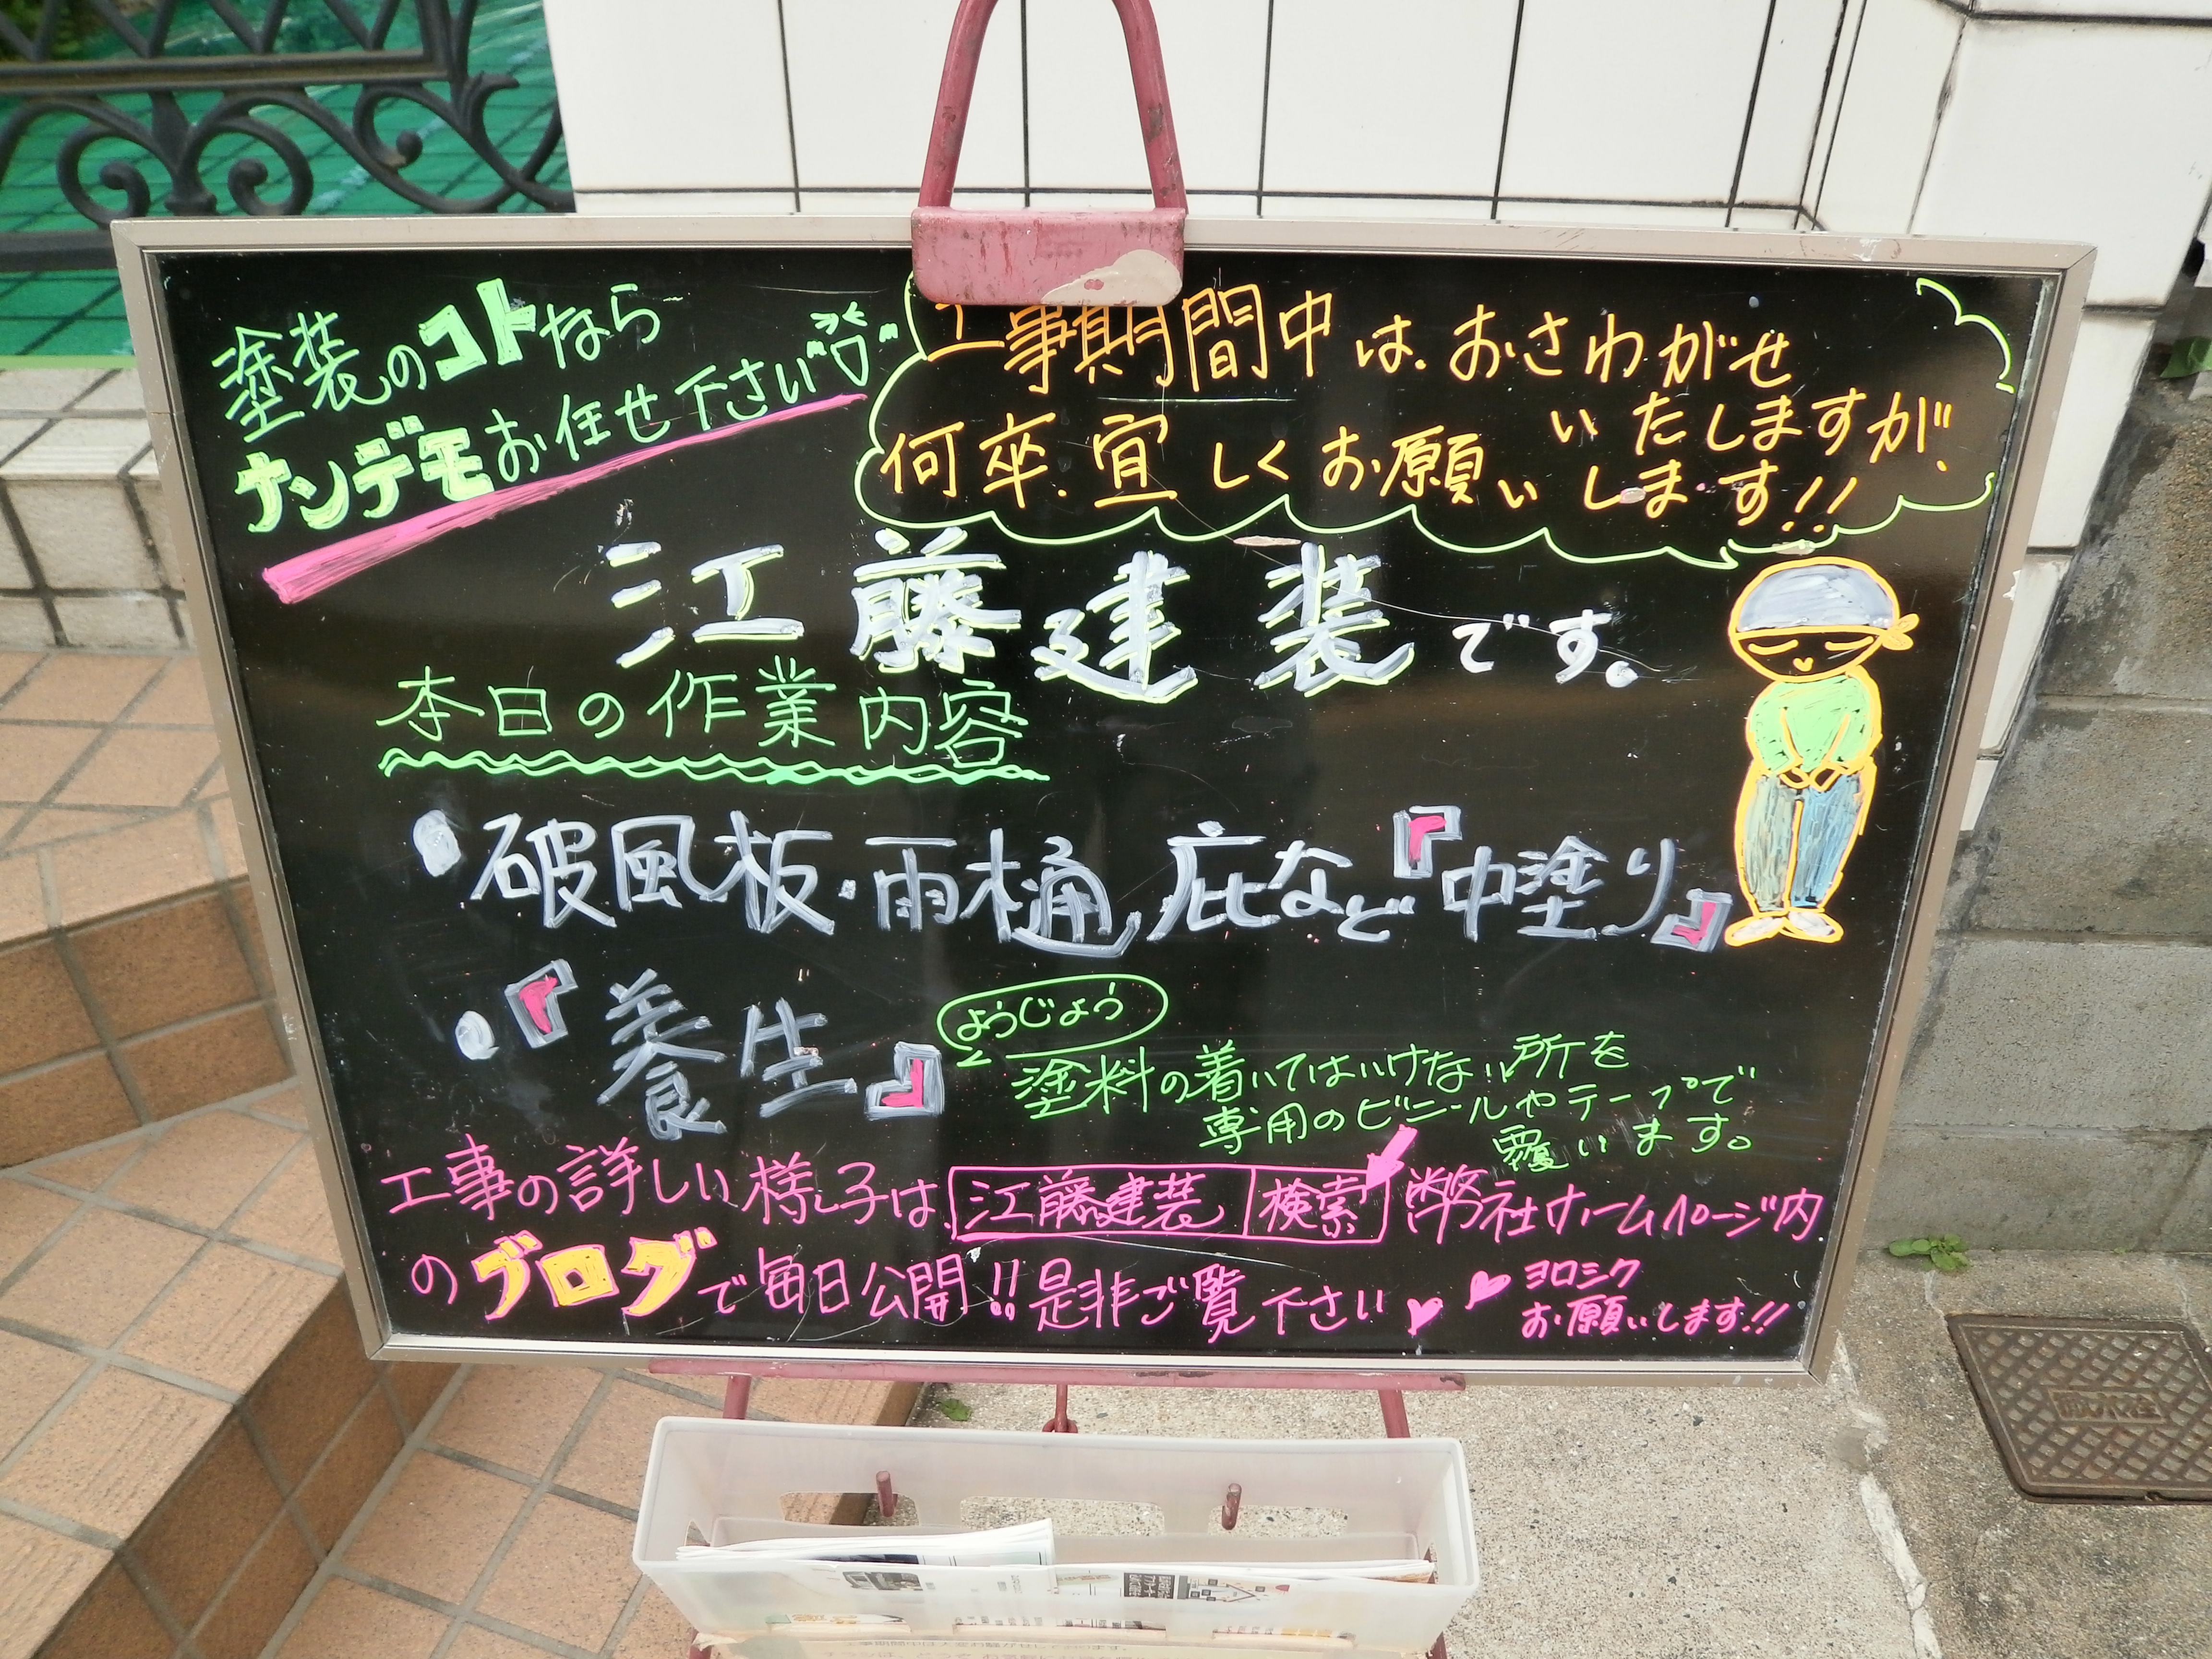 塗装のコトなら
ナンデモお任せ下さい
工事期間中は、おさわがせ
いたしますが、
何卒、宜しくお願いします!!
江藤建装です。
本日の作業内容
・破風板・雨樋、庇など『中塗り』
・『養生』
ようじょう
塗料の着いてはいけない所を
専用のビニールやテープで
覆います。
工事の詳しい様子は、江藤建装 検索 弊社ホームページ内
のブログで毎日公開!!是非ご覧下さい
ヨロシク
お願いします!!